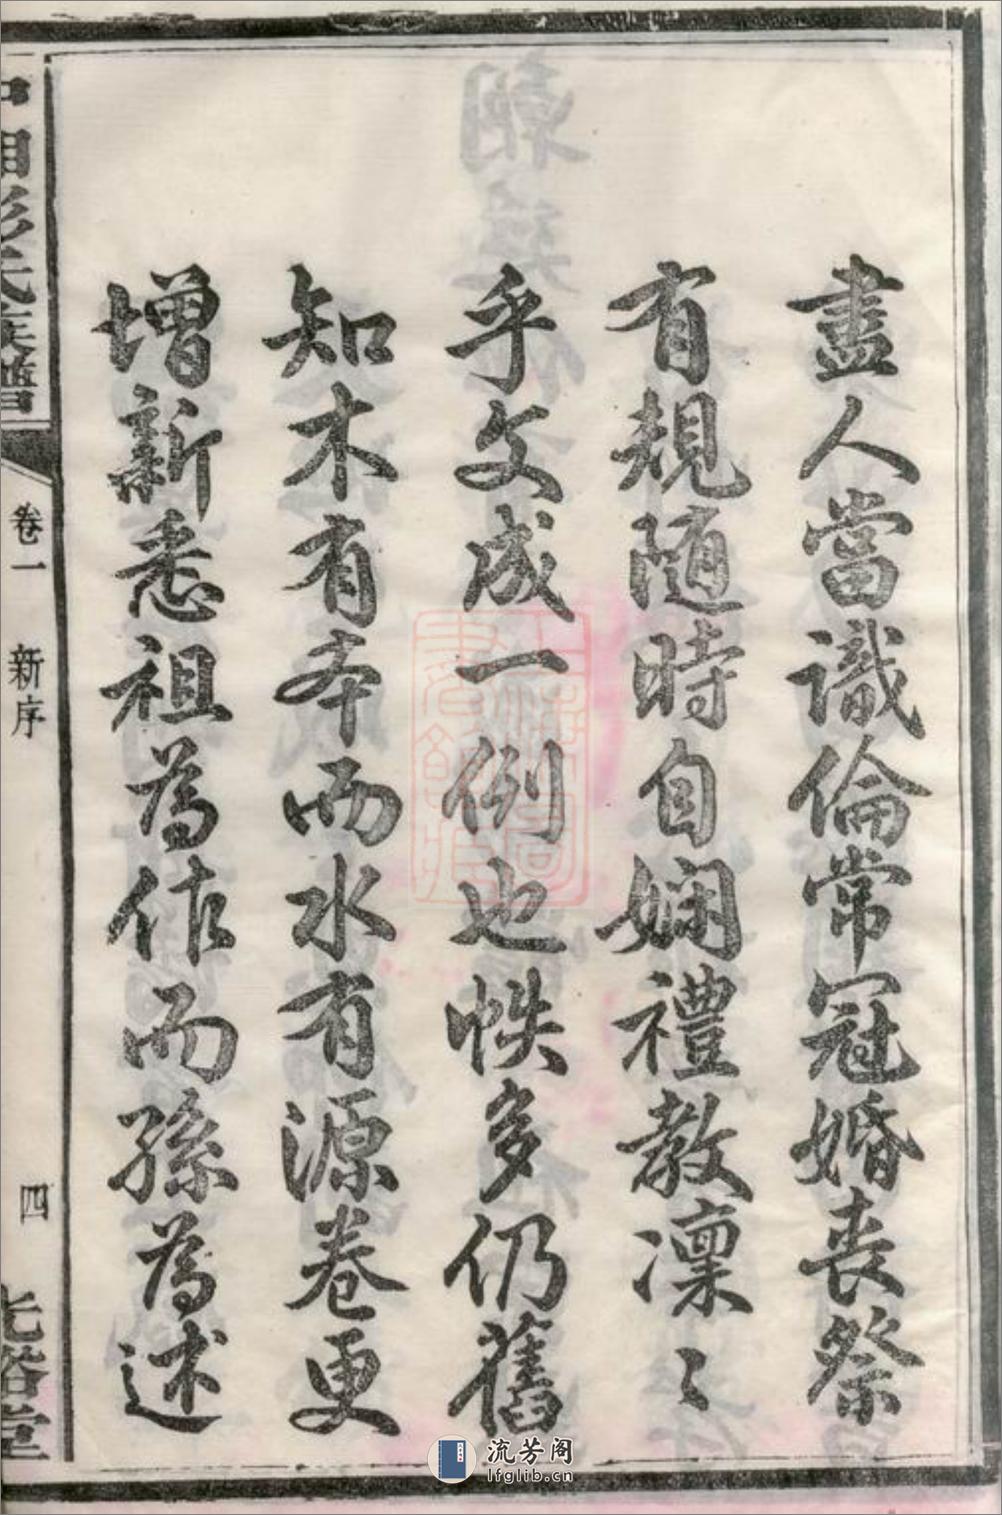 盡人當識倫常冠婚喪祭
有規隨時自嫻禮教凜〻
乎文成一例也帙多仍舊
知木有本而水有源卷更
增新悉祖為作而孫為述
中湘彭氏族譜
卷一 新序
四
光裕堂
流芳阁
lfglib.cn